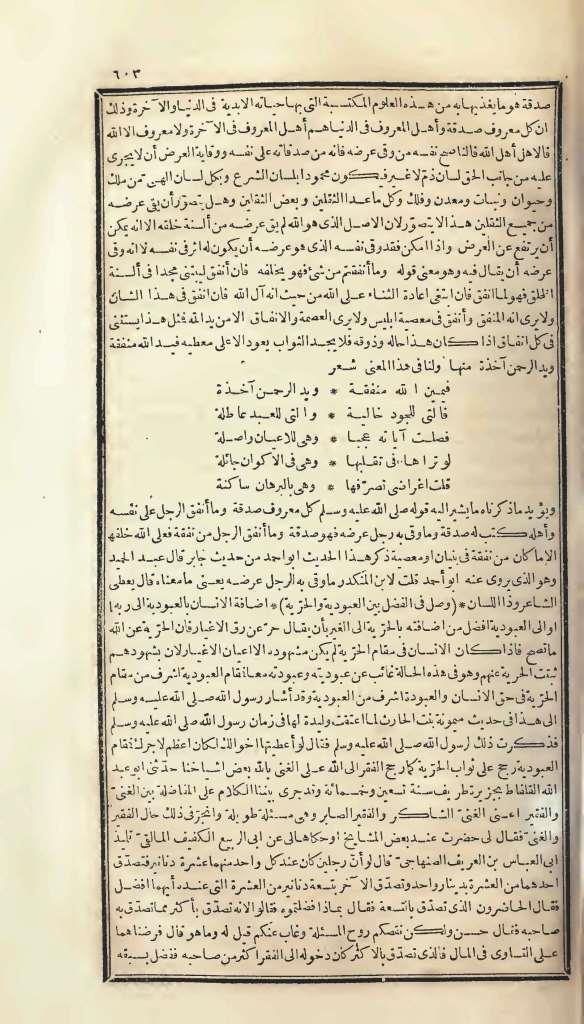 ٦٠٣
صدقة هو ما يغذيها به من هذه العلوم المكتسبة التي بها حياته الابدية في الدنيا والآخرة وذلك
ان كل معروف صدقة وأهل المعروف في الدنيا هم أهل المعروف في الآخرة ولا معروف الا الله
فالاهل أهل الله فالناصح نفسه من وقى عرضه فانه من صدقاته على نفسه ووقاية العرض أن لا يجرى
عليه من جانب الحق لسان ذم لا غير فيكون محمودا بلسان الشرع وبكل لسان الهى من ملك
وحيوان ونبات ومعدن وفلك وكل ما عدا الثقلين وبعض الثقلين وهل يتصور أن يقى عرضه
من جميع الثقلين هذا لا يتصور لان الاصل الذى هو الله لم يق عرضه من ألسنة خلقه الا انه يمكن
أن يرتفع عن العرض واذا أمكن فقد وقى نفسه الذى هو عرضه أن يكون له اثر في نفسه لا انه وقى
عرضه أن يقال فيه وهو معنى قوله وما أنفقتم من شئ فهو يخلفه فان أنفق ليبتنى مجدا في ألسنة
الخلق فهو لما انفق فان ابتغى اعادة الثناء على الله من حيث انه آل الله فان انفق في هذا الشان
ولا يرى انه المنفق وأنفق في معصية ابليس ولا يرى العصمة والانفاق الا من يد الله فمثل هذا يستثنى
في كل انفاق اذا كان هذا حاله وذوقه فلا يجد الثواب يعود الا على معطيه فيد الله منفقة
ويد الرحمن آخذة منها ولنا في هذا المعنى شعر
فيمين الله منفقة * ويد الرحمن آخذة
فالتي للجود خالية * والتي للعبد عاطلة
فصلت آياته عجبا * وهى للاعيان واصلة
لو تراها في تقلبها * وهى في الاكوان جائلة
قلت اغراضى تصرفها * وهى بالبرهان ساكنة
ويؤيد ما ذكرناه ما يشير اليه قوله صلى الله عليه وسلم كل معروف صدقة وما أنفق الرجل على نفسه
وأهله كتب له صدقة وما وقى به رجل عرضه فهو صدقة وما أنفق الرجل من نفقة فعلى الله خلفها
الا ما كان من نفقة في بنيان او معصية ذكر هذا الحديث ابو احمد من حديث جابر قال عبد الحميد
وهو الذى يروى عنه ابو أحمد قلت لابن المنكدر ما وقى به الرجل عرضه يعنى ما معناه قال يعطى
الشاعر وذا اللسان * (وصل في الفضل بين العبودية والحرية) * اضافة الانسان بالعبودية الى ربه
او الى العبودية افضل من اضافته بالحرية الى الغير بأن يقال حر عن رق الاغيار فان الحرية عن الله
ما تصح فاذا كان الانسان في مقام الحرية لم يكن مشهوده الا أعيان الاغيار لان بشهودهم
ثبتت الحرية عنهم وهو في هذه الحالة غائب عن عبوديته وعبودته معا فمقام العبودية اشرف من مقام
الحرية في حق الانسان والعبودة اشرف من العبودية وقد أشار رسول الله صلى الله عليه وسلم
الى هذا في حديث ميمونة بنت الحارث لما اعتقت وليدة لها في زمان رسول الله صلى الله عليه وسلم
فذكرت ذلك لرسول الله صلى الله عليه وسلم فقال لو أعطيتها اخوالك لكان اعظم لاجرك فمقام
العبودية رجح على ثواب الحرية كما رجح الفقر الى الله على الغنى بالله بعض اشياخنا حدثني ابو عبد
الله القلفاط بجزيرة طريف سنة تسعين وخمسمائة وقد جرى بيننا الكلام على المفاضلة بين الغنى
والفقير اعنى الغنى الشاكر والفقير الصابر وهى مسئلة طويلة وانجر في ذلك حال الفقير
والغنى فقال لى حضرت عند بعض المشايخ او حكاها لى عن ابى الربيع الكفيف المالقى تلميذ
ابى العباس بن العريف الصنهاجى قال لو أن رجلين كان عند كل واحد منهما عشرة دنانير فتصدق
احدهما من العشرة بدينار واحد وتصدق الآخر بتسعة دنانير من العشرة التي عنده أيهما افضل
فقال الحاضرون الذى تصدق بالتسعة فقال بماذا فضلتموه فقالوا لانه تصدق بأكثر مما تصدق به
صاحبه فقال حسن ولكن نقصكم روح المسئلة وغاب عنكم قيل له وما هو قال فرضناهما
على التساوى في المال فالذى تصدق بالاكثر كان دخوله الى الفقر اكثر من صاحبه ففضل بسبقه